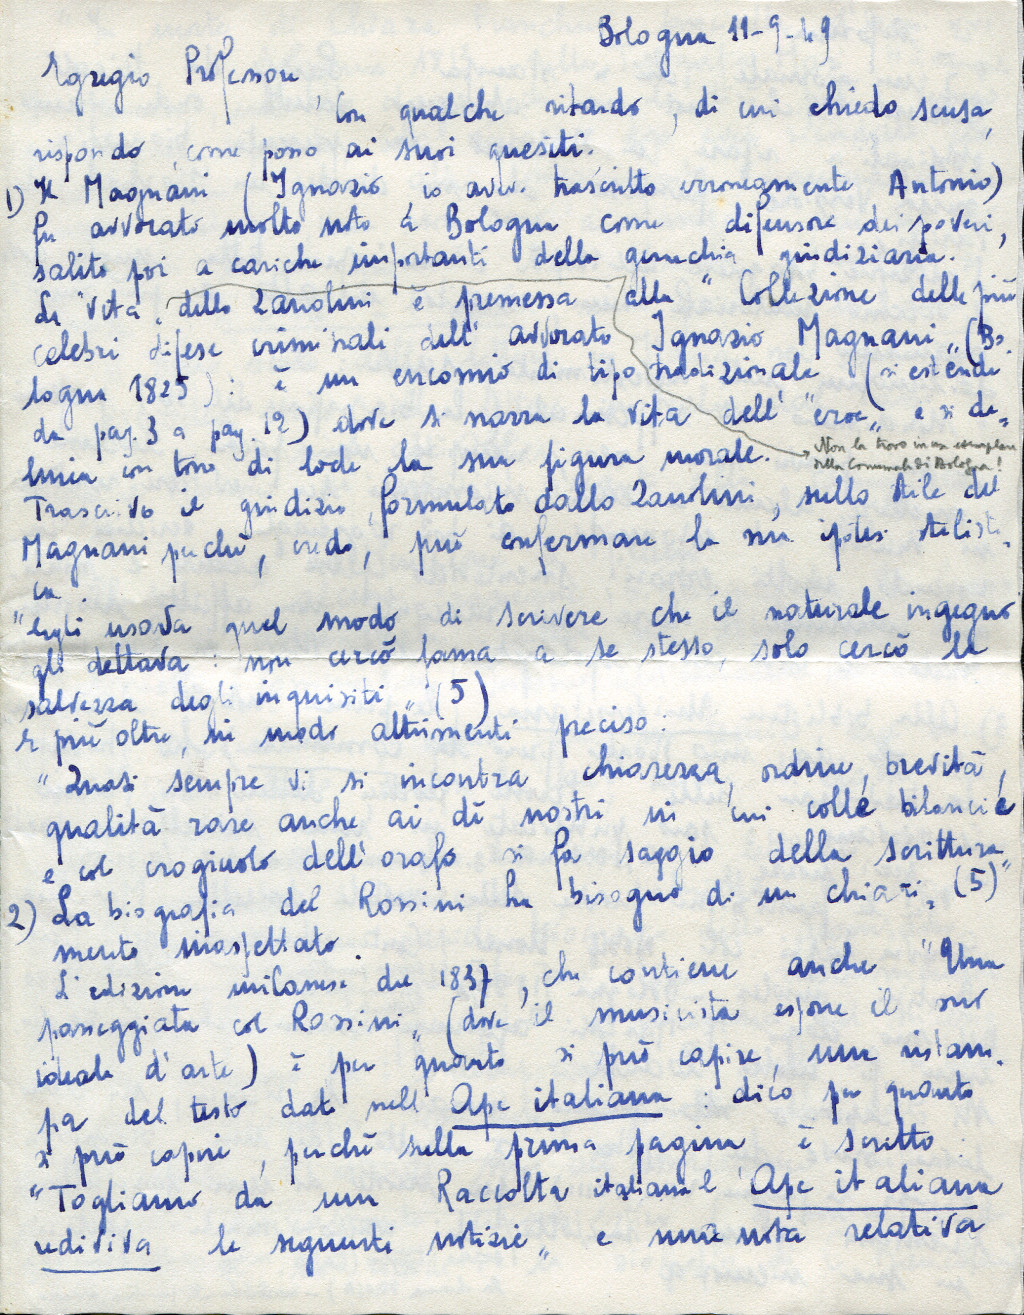 Bologna 11-9-49
Egregio Professore
con qualche ritardo, di cui chiedo scusa,
rispondo, come posso ai suoi quesiti.
1) Il Magnani (Ignazio, io avevo trascritto erroneamente Antonio)
fu avvocato molto noto a Bologna come difensore dei poveri,
salito poi a cariche importanti della gerarchia giudiziaria.
La "vita" dello Zanolini è premessa alla "Collezione delle più
celebri difese criminali dell'avvocato Ignazio Magnani" (Bo-
logna 1825): è un encomio di tipo tradizionale (si estende
da pag. 3 a pag. 12) dove si narra la vita dell'"eroe" e si de-
linea con tono di lode la sua figura morale.
Non la trovo in un esemplare
della Comunale di Bologna!
Trascrivo il giudizio, formulato dallo Zanolini, sullo stile del
Magnani perchè, credo, può confermare la sua ipotesi stilisti-
ca.
"Egli usava quel modo di scrivere che il naturale ingegno
gli dettava: non cercò fama a se stesso, solo cercò la
salvezza degli inquisiti" (5)
E più oltre, in modo altrimenti preciso:
"Quasi sempre vi si incontra chiarezza, ordine, brevità,
qualità rare anche ai dì nostri in cui colle bilancie
e col crogiuolo dell'orafo si fa saggio della scrittura" (5)
2) La biografia del Rossini ha bisogno di un chiari-
mento inaspettato
L'edizione milanese del 1837, che contiene anche "Una
passeggiata col Rossini" (dove il musicista espone il suo
ideale d'arte) è per quanto si può capire, una ristam-
pa del testo dato nell'Ape italiana: dico per quanto
si può capire, perchè nella prima pagina è scritto:
"Togliamo da una Raccolta italiana l'Ape italiana
rediviva le seguenti notizie" e una nota relativa